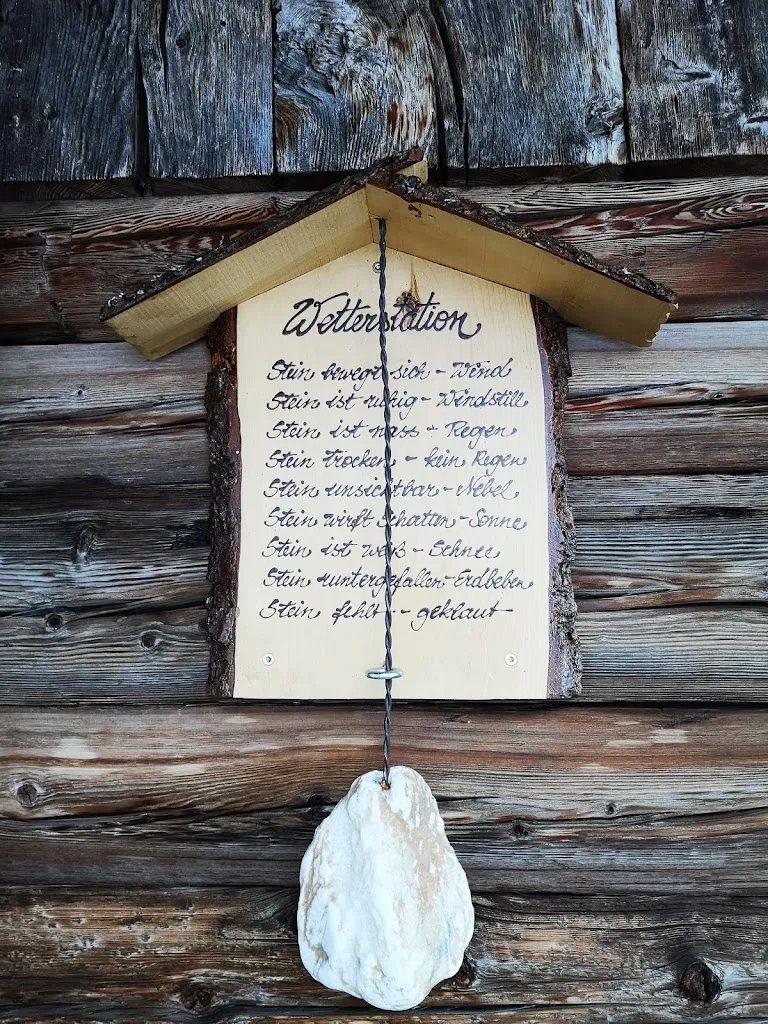 Wetterstation
Stein bewegt sich - Wind
Stein ist ruhig - Windstill
Stein ist nass - Regen
Stein trocken - kein Regen
Stein unsichtbar - Nebel
Stein wirft Schatten - Sonne
Stein ist weiß - Schnee
Stein runtergefallen - Erdbeben
Stein fehlt - geklaut